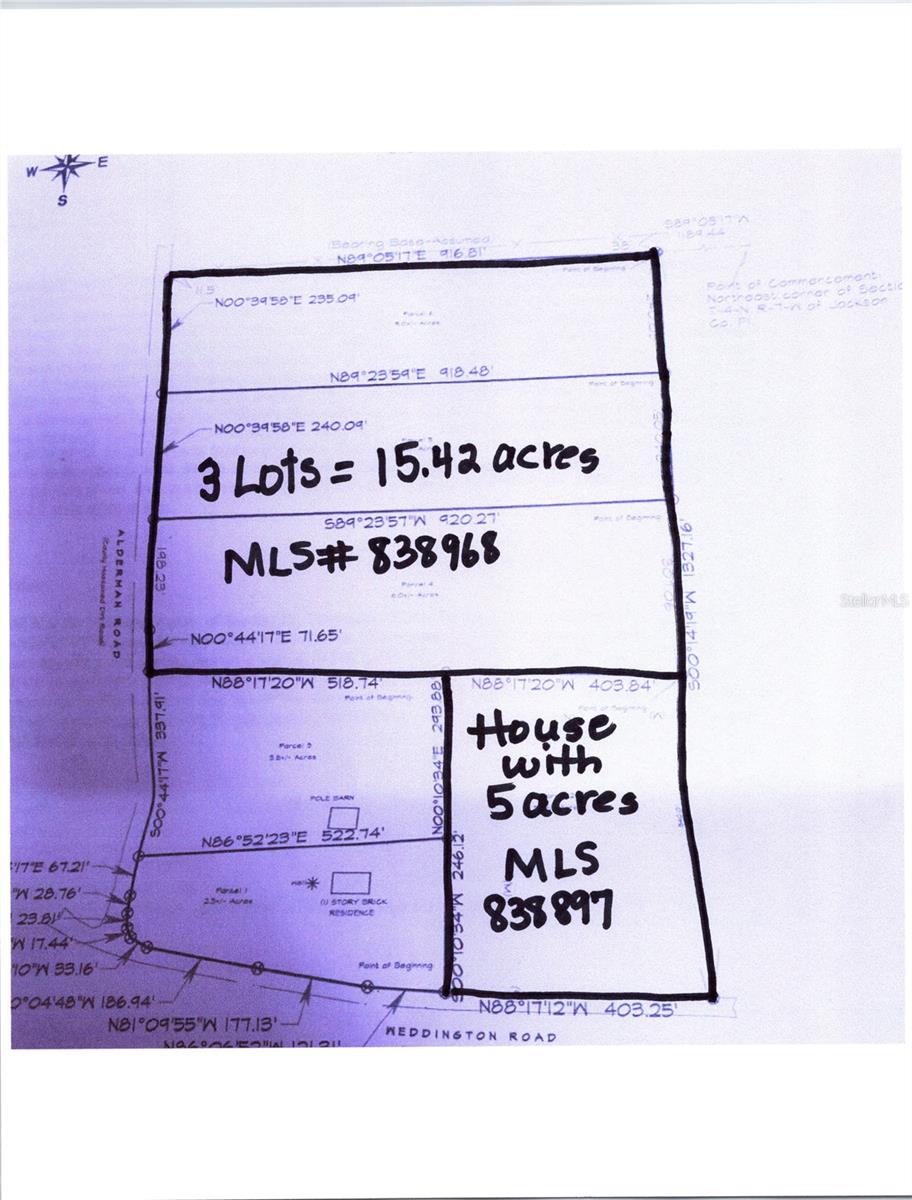 W E
S
S89°05'17"W
1189.44
(Bearing Base-Assumed)
N89°05'17"E 916.81'
38
Point of Beginning
Point of Commencement:
Northeast corner of Sectio
T-4-N, R-7-W of Jackson
Co. Fl.
11.5
N00°39'58"E 235.09'
N89°23'59"E 918.48'
Point of Beginning
N00°39'58"E 240.09'
3 Lots = 15.42 acres
S89°23'57"W 920.27'
Point of Beginning
MLS# 838968
Parcel 4
ALDERMAN ROAD
(County Maintained Dirt Road)
198.23'
S00°14'19"W 1327.16'
StellarMLS
N00°44'17"E 71.65'
N88°17'20"W 518.74'
Point of Beginning
N88°17'20"W 403.84'
Point of Beginning
S00°44'17"W 237.91'
N00°10'34"E 293.88'
House
with
5 acres
Parcel 3
3.8+/- Acres
POLE BARN
N86°52'23"E 522.74'
MLS
838897
'17"E 67.21'
"W 28.76'
23.81'
"W 17.44'
'10"W 33.16'
0°04'48"W 186.94'
N81°09'55"W 177.13'
Parcel 1
2.5+/- Acres
Well
(1) STORY BRICK
RESIDENCE
S00°10'34"W 246.12'
Point of Beginning
N88°17'12"W 403.25'
WEDDINGTON ROAD